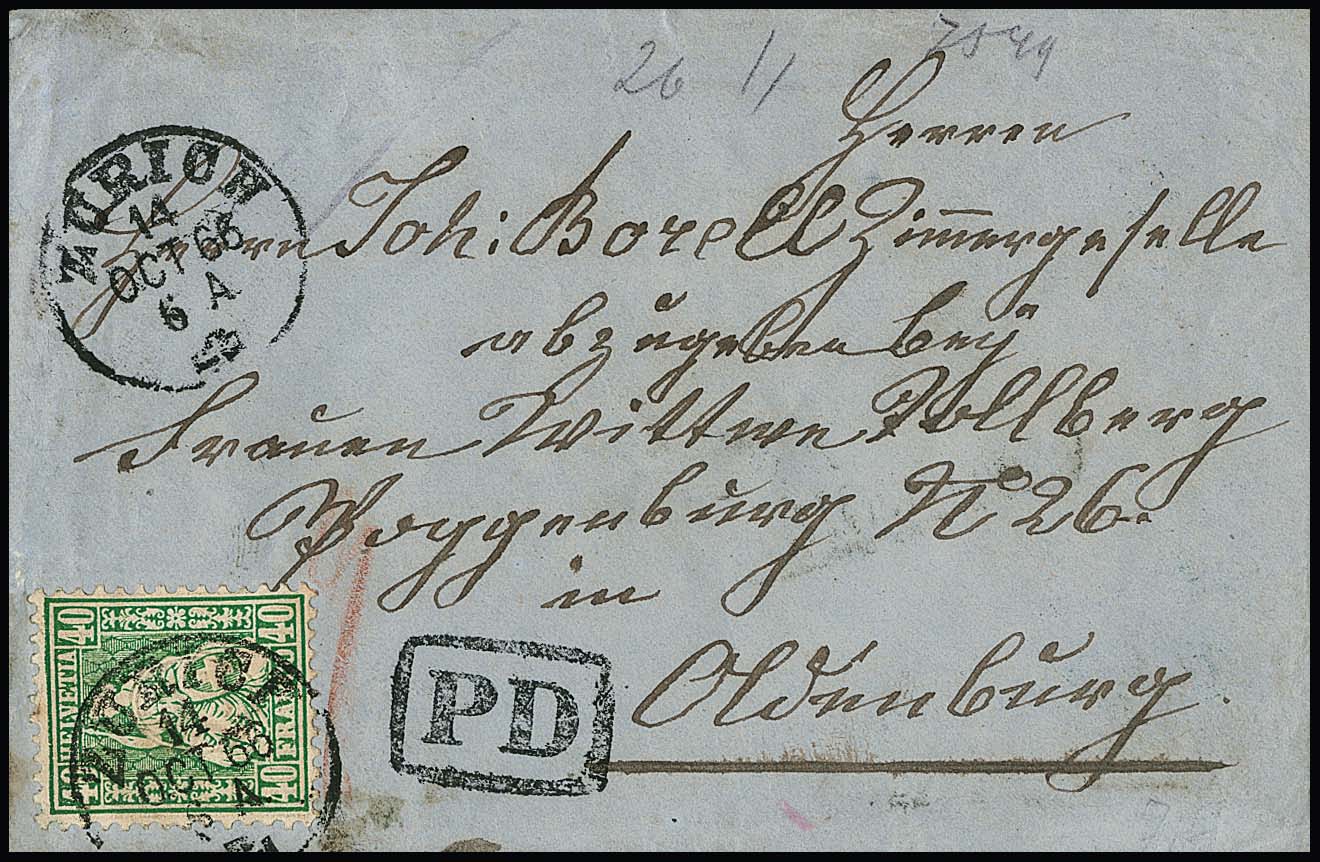 26 1/ 7549
Herren
Herrn Joh: Borell Zimmergeselle
abzugeben beÿ
Frauen Wittwe Zollberg
Poggenburg No 26.
in
Oldenburg.
ZÜRICH
14
OCT 66
6 A
PD
40 40
HELVETIA
FRANCO
40 40
ZÜRICH
14
OCT 66
A